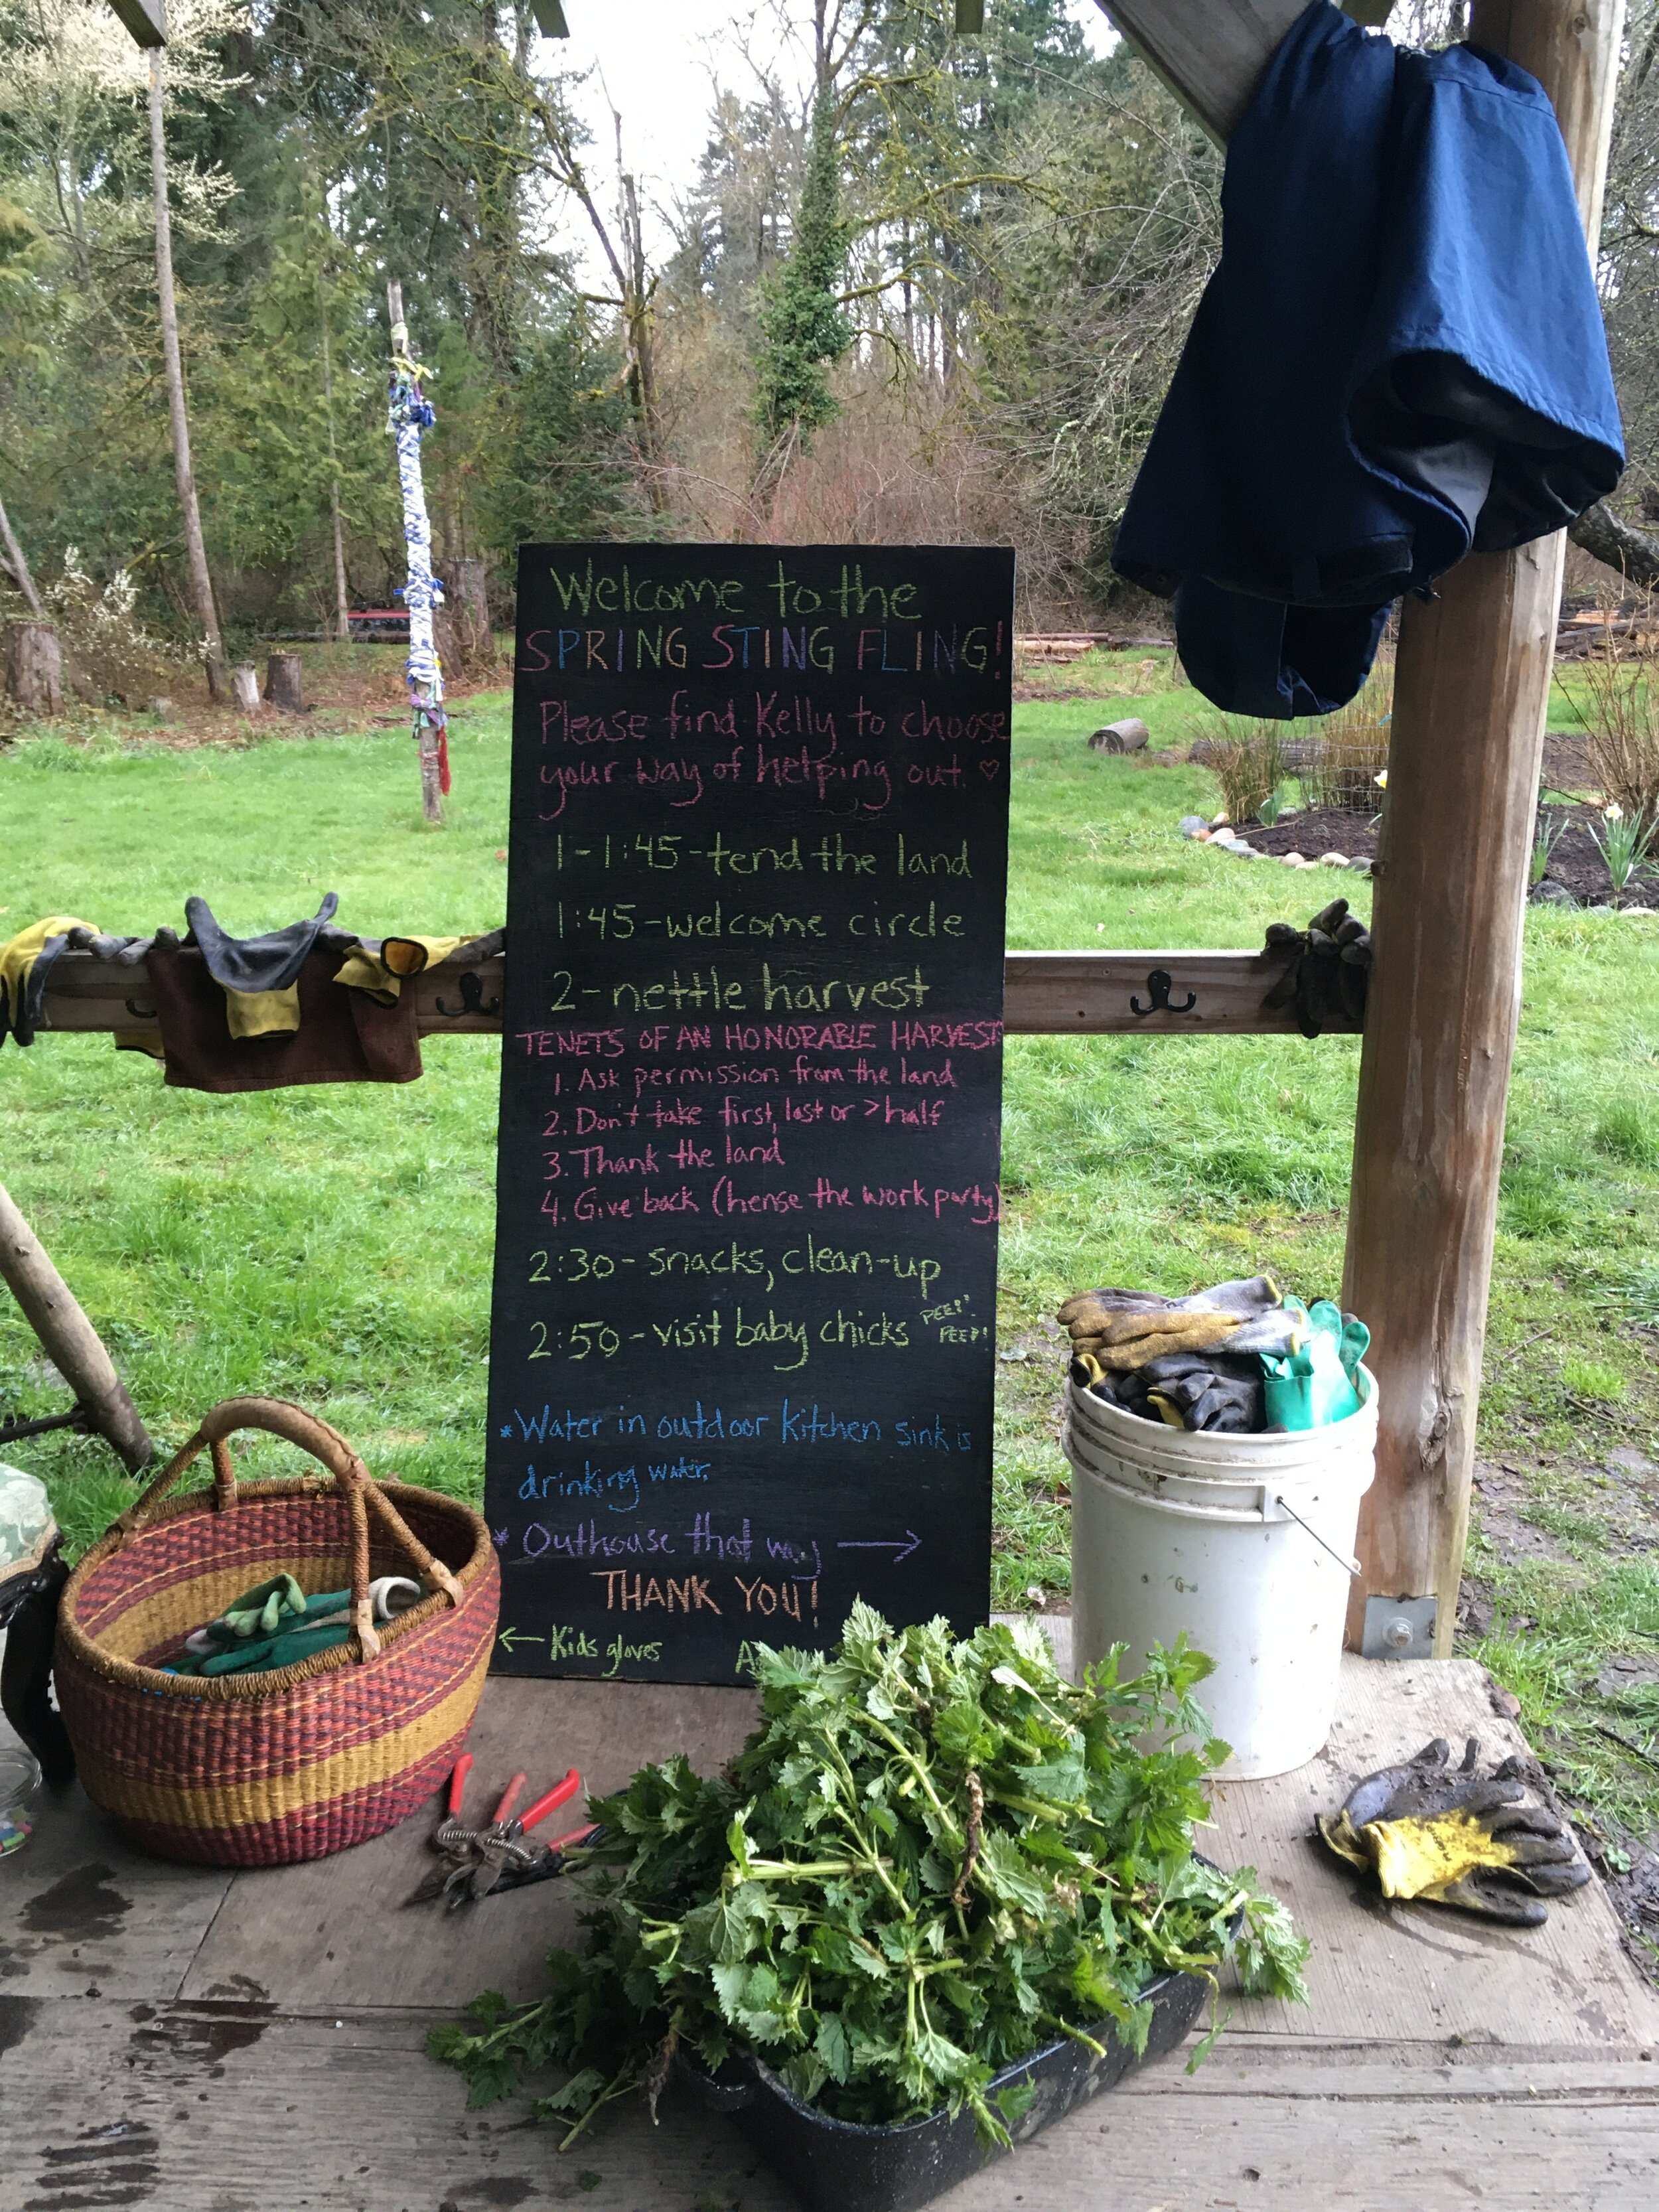 Welcome to the
SPRING STING FLING!
Please find Kelly to choose
your way of helping out. ♡
1-1:45-tend the land
1:45-welcome circle
2-nettle harvest
TENETS OF AN HONORABLE HARVEST:
1. Ask permission from the land
2. Don't take first, last or >half
3. Thank the land
4. Give back (hense the work party)
2:30-snacks, clean-up
2:50-visit baby chicks PEEP! PEEP!
*Water in outdoor kitchen sink is
drinking water.
* Outhouse that way →
THANK YOU!
← Kids gloves